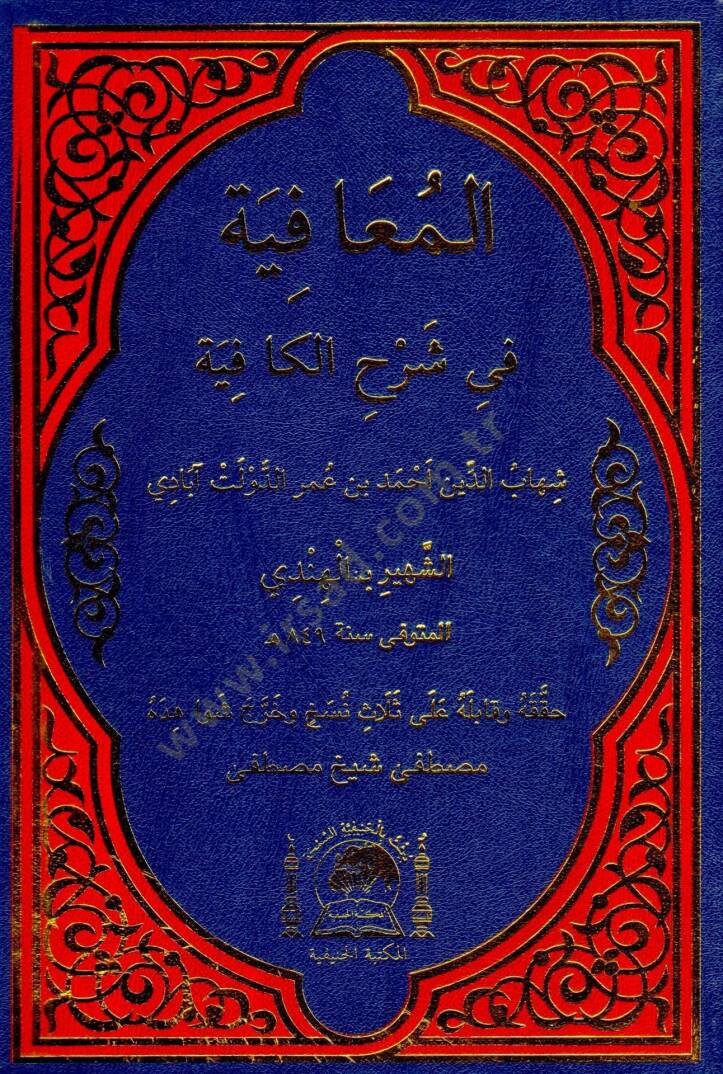 المُعَافِيَة
فِي شَرْحِ الكَافِيَة
شِهابُ الدِّين اَحْمَد بن عُمر الدَّوْلَتْ آبَادِي
الشَّهيرِ بـالْهِنْدِي
المتوفى سنة ٨٤٩ هـ
حقَّقَهُ وقابلَهُ عَلَى ثَلَاثِ نُسَخٍ وخَرَّجَ شواهِدَهُ
مصطفى شيخ مصطفى
المكتبة الحنيفية
المكتبة الحنيفية
www.irsad.com.tr